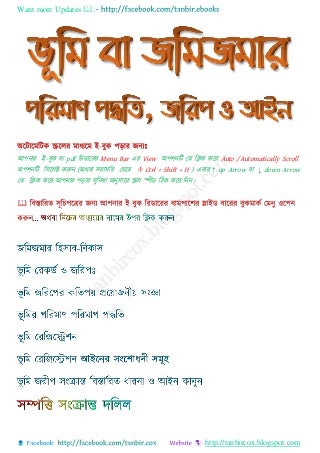 Want more Updates 📖 :- http://facebook.com/tanbir.ebooks
ভূমি বা জমিজমার
পরিমাণ পদ্ধতি, জরিপ ও আইন
অটোমেটিক স্ক্রলের মাধ্যমে ই-বুক পড়ার জন্যঃ
আপনার ই-বুক বা pdf রিডারের Menu Bar এর View অপশনটি তে ক্লিক করে Auto /Automatically Scroll
অপশনটি সিলেক্ট করুন (অথবা সরাসরি যেতে ⇒ Ctrl + Shift + H ) এবার ↑ up Arrow বা ↓ down Arrow
তে ক্লিক করে আপনার পড়ার সুবিধা অনুসারে স্ক্রল স্পীড ঠিক করে নিন।
📖 বিস্তারিত সূচিপত্রের জন্য আপনার ই-বুক রিডারের বামপাশের স্লাইড বারের বুকমার্ক মেনু ওপেন
করুন... অথবা নিচের অধ্যায়ের নামের উপর ক্লিক করুন
জমিজমার হিসাব-নিকাস
ভূমি রেকর্ড ও জরিপঃ
ভূমি জরিপের কতিপয় প্রয়োজনীয় সংজ্ঞা
ভূমির পরিমাণ পরিমাপ পদ্ধতি
ভূমি রেজিস্ট্রেশন
ভূমি রেজিস্ট্রেশন আইনের সংশোধনী সমূহ
ভূমি জরীপ সংক্রান্ত বিস্তারিত ধারনা ও আইন কানুন
সম্পত্তি সংক্রান্ত দলিল
tanbircox.blogspot.com
Facebook: http://facebook.com/tanbir.cox Website http://tanbircox.blogspot.com